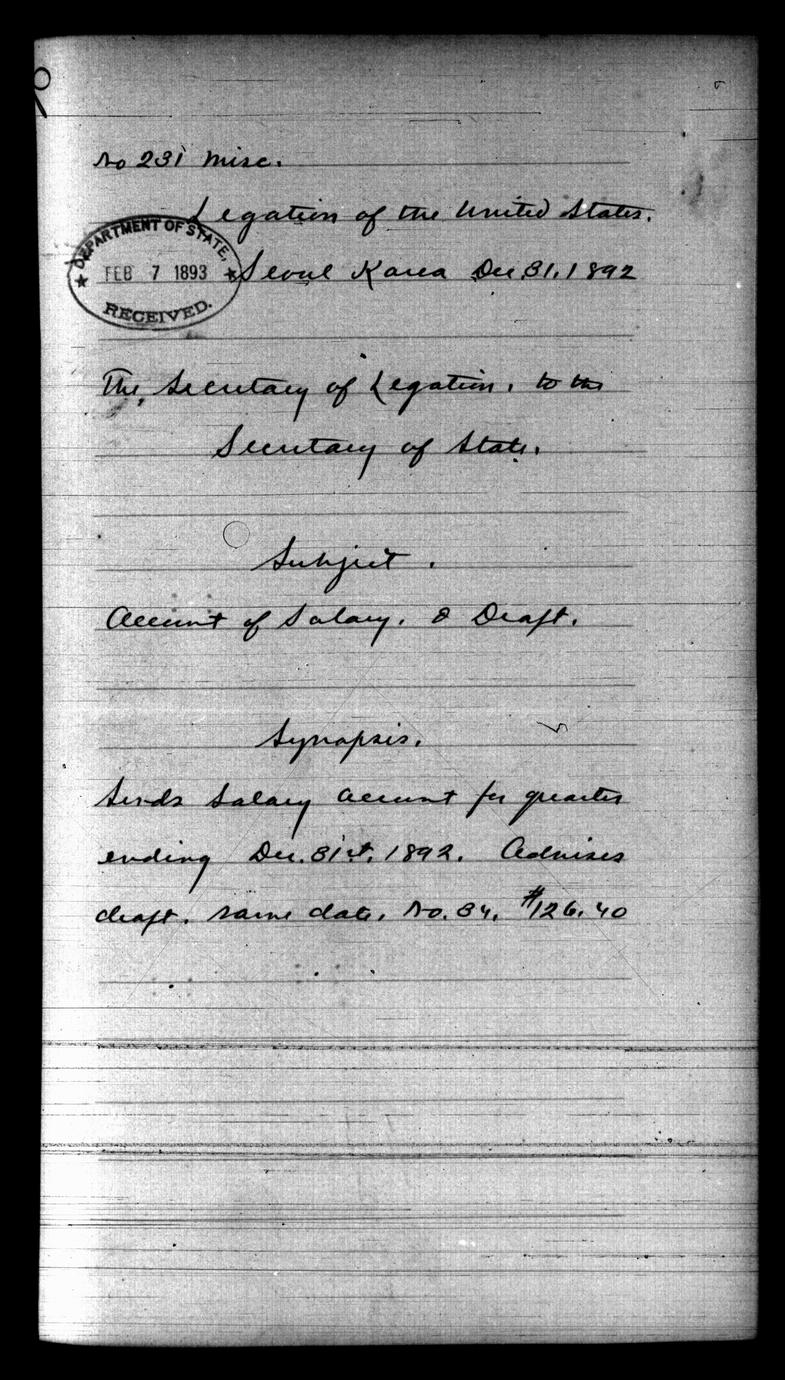 No 231 Misc.
Legation of the United States.
DEPARTMENT OF STATE,
FEB 7 1893
RECEIVED.
Seoul Korea Dec. 31, 1892
The Secretary of Legation, to the
Secretary of State.
Subject.
Account of Salary. & Draft.
Synopsis.
Sends Salary account for quarter
ending Dec. 31st, 1892. Advises
draft, same date, No. 34. $126.40